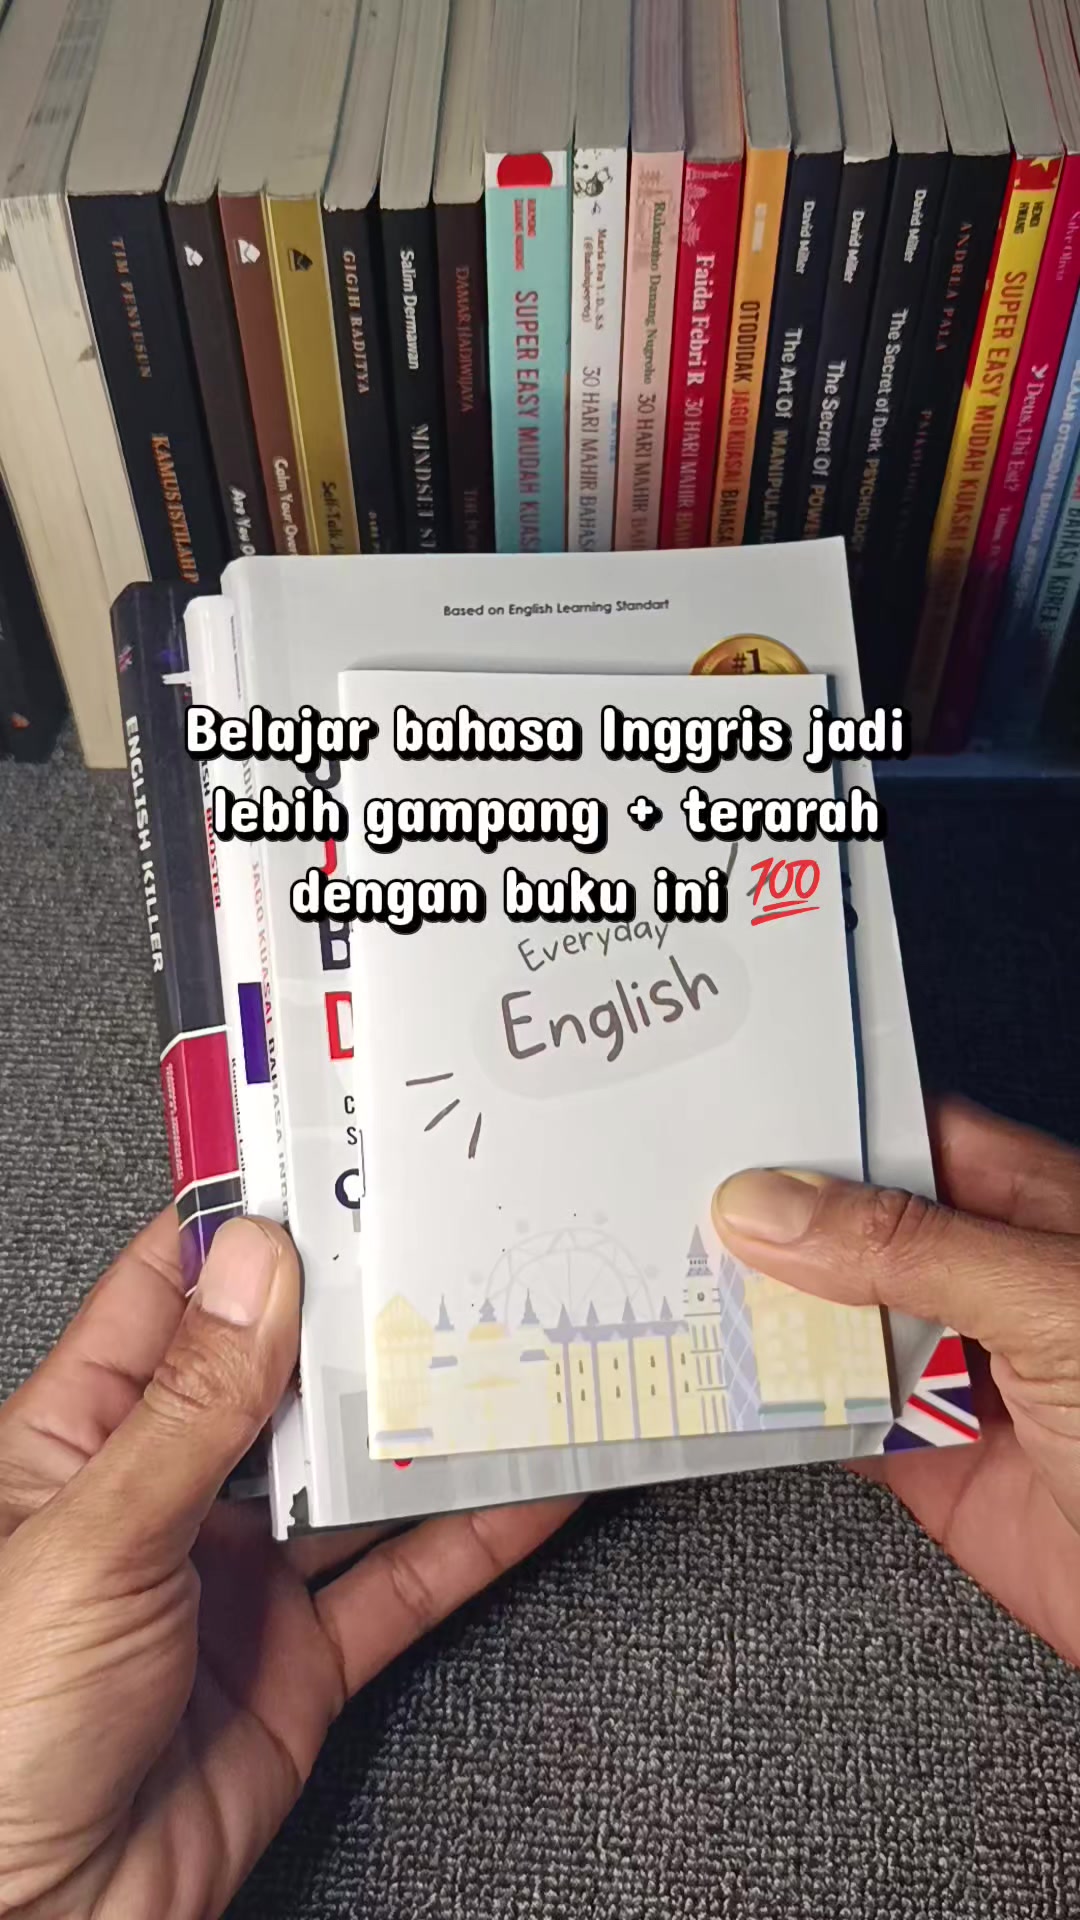 TIM PENYUSUN
KAMUS ISTILAH
Calm Your
GIGIH RADITYA
Salim Dermawan
MINDSET
DAMAR HADIWIJAYA
SUPER EASY MUDAH
30 HARI MAHIR
Rukmtho Danang Nugroho
30 HARI MAHIR
Faida Febri R
30 HARI MAHIR
OTODIDAK JAGO KUASAI BAHASA
David Miller
The Art Of MANIPULATI
David Miller
The Secret Of POWE
David Miller
The Secret of Dark PSYCHOLOGY
ANDREA PALA
SUPER EASY MUDAH KUASAI
Deus, Ubi Est?
BAHASA KOREA
Based on English Learning Standart
#1
Belajar bahasa Inggris jadi
lebih gampang + terarah
dengan buku ini 💯
Everyday
English
ENGLISH KILLER
BOOSTER
JAGO KUASAI BAHASA INGG